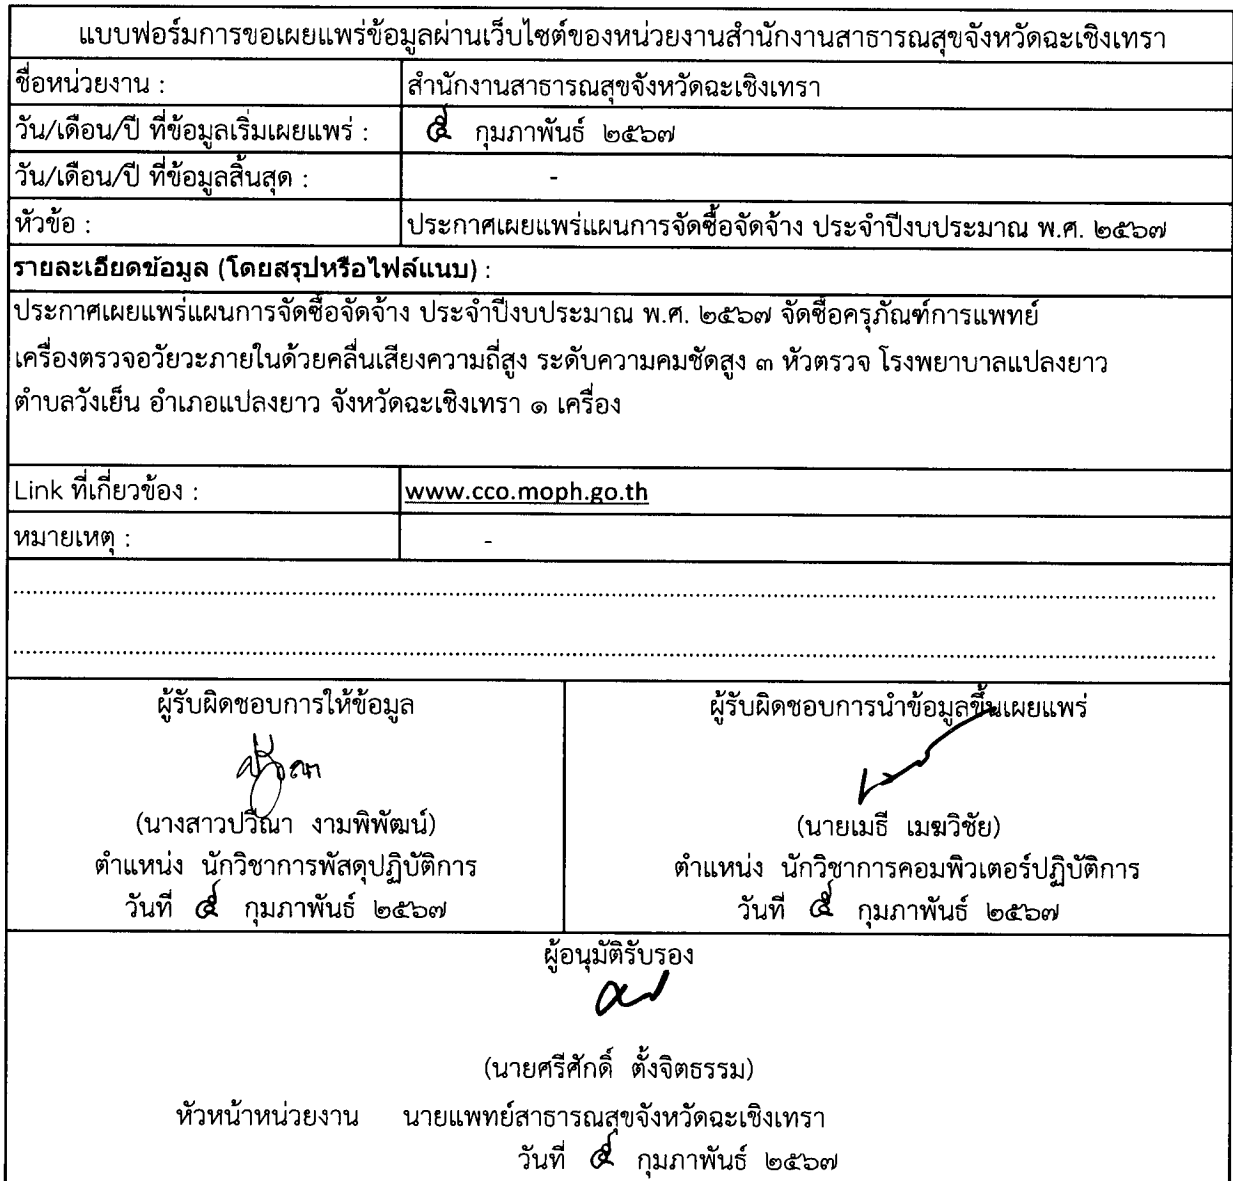 แบบฟอร์มการขอเผยแพร่ข้อมูลผ่านเว็บไซต์ของหน่วยงานสำนักงานสาธารณสุขจังหวัดฉะเชิงเทรา
ชื่อหน่วยงาน : สำนักงานสาธารณสุขจังหวัดฉะเชิงเทรา
วัน/เดือน/ปี ที่ข้อมูลเริ่มเผยแพร่ : ๕ กุมภาพันธ์ ๒๕๖๗
วัน/เดือน/ปี ที่ข้อมูลสิ้นสุด : -
หัวข้อ : ประกาศเผยแพร่แผนการจัดซื้อจัดจ้าง ประจำปีงบประมาณ พ.ศ. ๒๕๖๗
รายละเอียดข้อมูล (โดยสรุปหรือไฟล์แนบ) :
ประกาศเผยแพร่แผนการจัดซื้อจัดจ้าง ประจำปีงบประมาณ พ.ศ. ๒๕๖๗ จัดซื้อครุภัณฑ์การแพทย์
เครื่องตรวจอวัยวะภายในด้วยคลื่นเสียงความถี่สูง ระดับความคมชัดสูง ๓ หัวตรวจ โรงพยาบาลแปลงยาว
ตำบลวังเย็น อำเภอแปลงยาว จังหวัดฉะเชิงเทรา ๑ เครื่อง
Link ที่เกี่ยวข้อง : www.cco.moph.go.th
หมายเหตุ : -
ผู้รับผิดชอบการให้ข้อมูล
(นางสาวปวีณา งามพิพัฒน์)
ตำแหน่ง นักวิชาการพัสดุปฏิบัติการ
วันที่ ๕ กุมภาพันธ์ ๒๕๖๗
ผู้รับผิดชอบการนำข้อมูลขึ้นเผยแพร่
(นายเมธี เมฆวิชัย)
ตำแหน่ง นักวิชาการคอมพิวเตอร์ปฏิบัติการ
วันที่ ๕ กุมภาพันธ์ ๒๕๖๗
ผู้อนุมัติรับรอง
(นายศรีศักดิ์ ตั้งจิตธรรม)
หัวหน้าหน่วยงาน นายแพทย์สาธารณสุขจังหวัดฉะเชิงเทรา
วันที่ ๕ กุมภาพันธ์ ๒๕๖๗